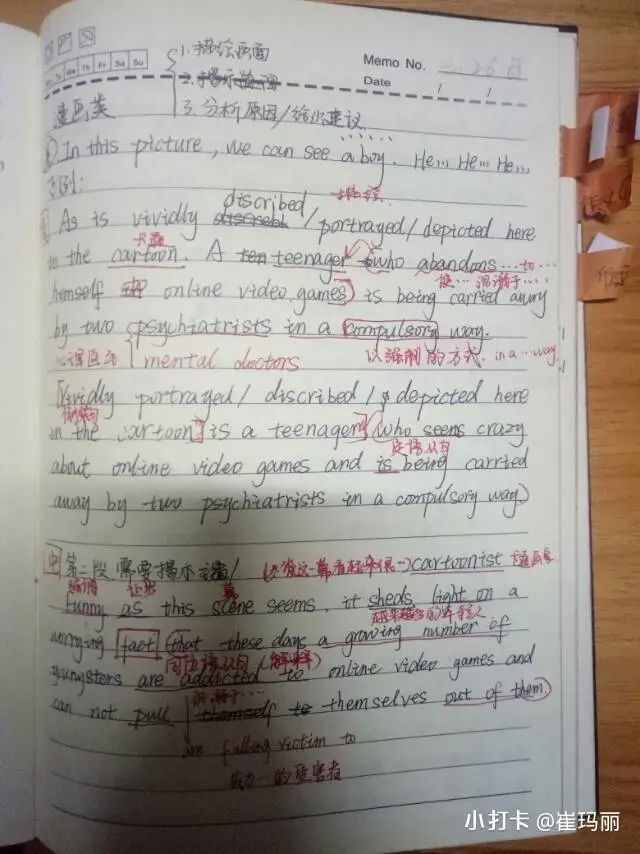 Mo Tu We Th Fr Sa Su
1. 描绘画面
Memo No. 2.26
2. 揭示道理
Date / /
漫画类
3. 分析原因/给出建议
In this picture, we can see a boy. He... He... He...
例:
discribed 描绘
As is vividly /portrayed/depicted here
卡通
in the cartoon. A teenager who abandons...to...
使…沉溺于…
himself online video games is being carried away
by two psychiatrists in a compulsory way.
心理医生 mental doctors 以强制的方式. in a...way.
Vividly portrayed/ discribed/ depicted here
in the cartoon is a teenager who seems crazy
定语从句
about online video games and is being carried
away by two psychiatrists in a compulsory way.
中 第二段 需要揭示主题/ cartoonist 漫画家
Funny as this scene seems, it sheds light on a
越来越多的年轻人
worrying fact that these days a growing number of
同位语从句(解释)
youngsters are addicted to online video games and
沉溺于…
can not pull themself to themselves out of them.
in falling victim to
成为…的受害者
小打卡 @崔玛丽